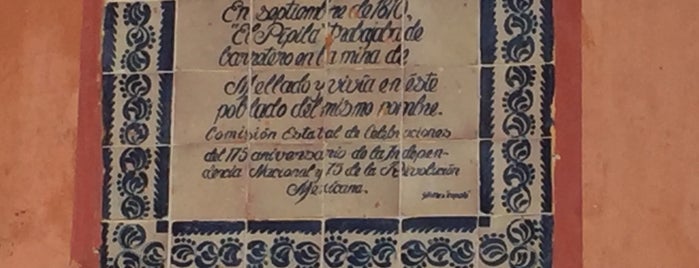 En septiembre de 1810,
"El Pípila" trabajaba de
barretero en la mina de
Mellado y vivía en éste
poblado del mismo nombre.
Comisión Estatal de Celebraciones
del 175 aniversario de la Indepen-
dencia Nacional y 75 de la Revolución
Mexicana.